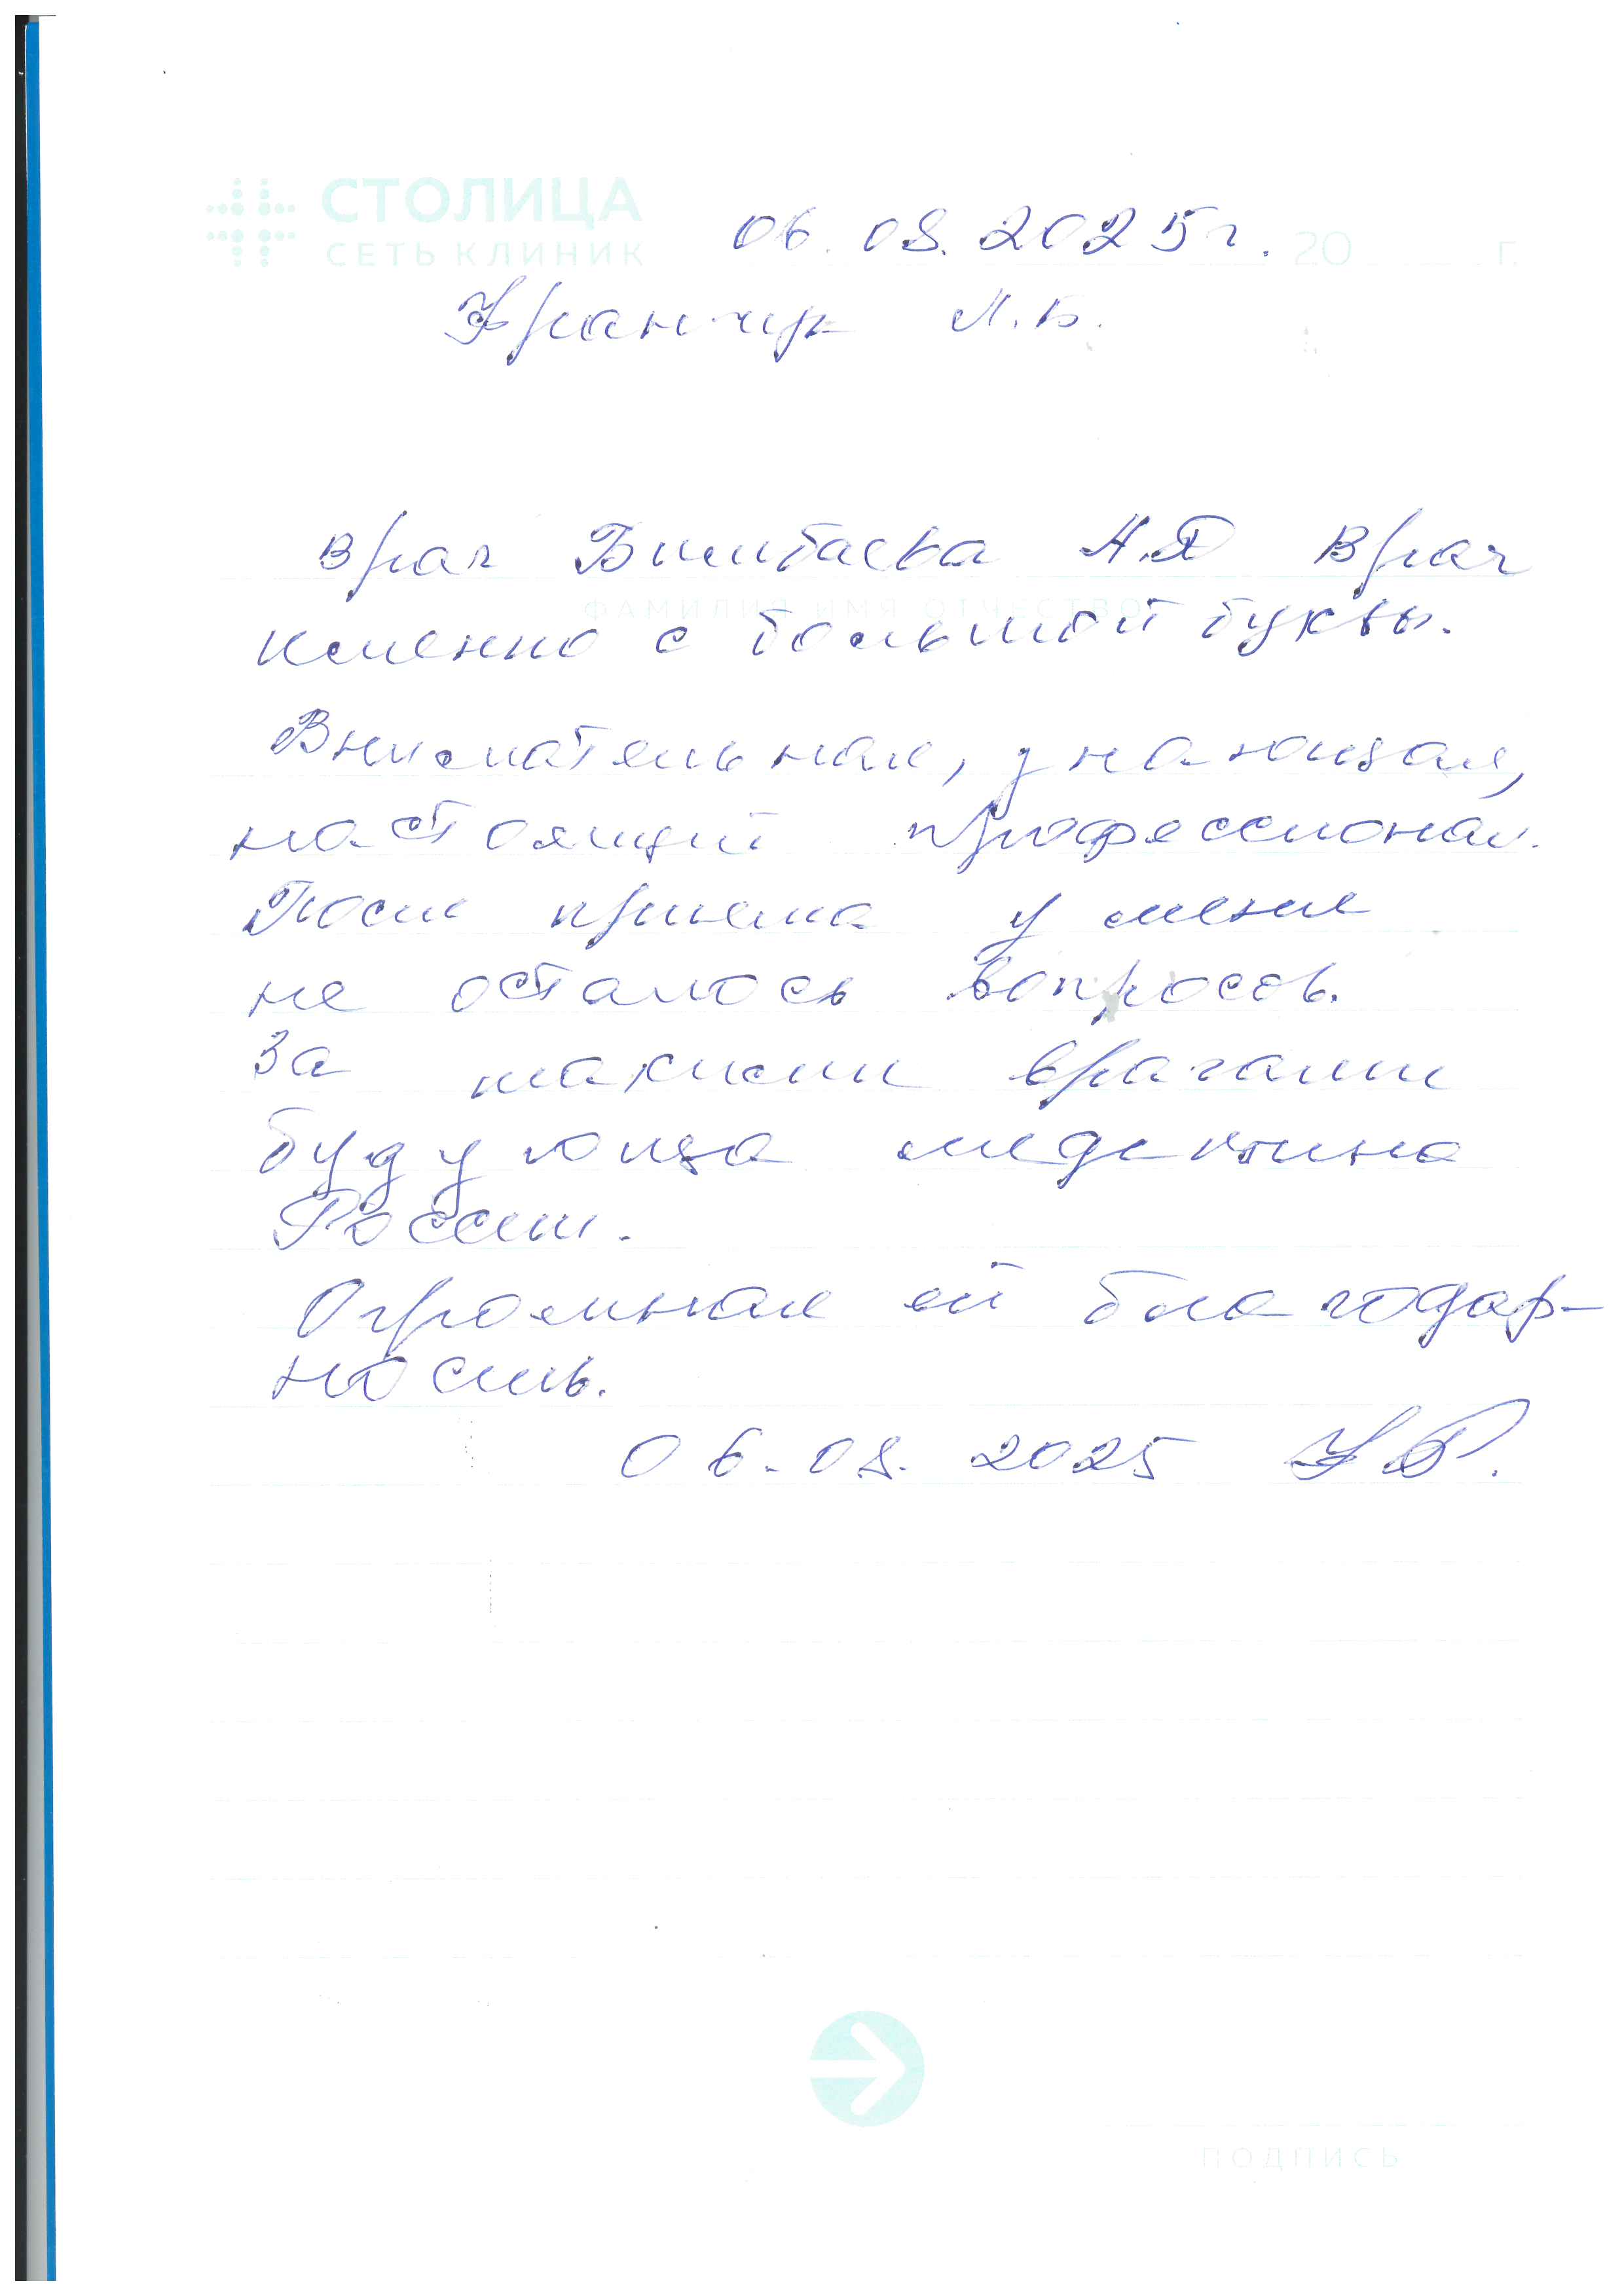 СТОЛИЦА
СЕТЬ КЛИНИК
06.08.2025г. 20 г.
Л.Б.
Врач Н.Я Врач
ФАМИЛИЯ ИМЯ ОТЧЕСТВО
именно с большой буквы.
Внимательная, знающая,
настоящий профессионал.
После приема у меня
не осталось вопросов.
За такими врачами
будующа медицина
России.
Огромная ей благодар-
ность.
06.08.2025
ПОДПИСЬ